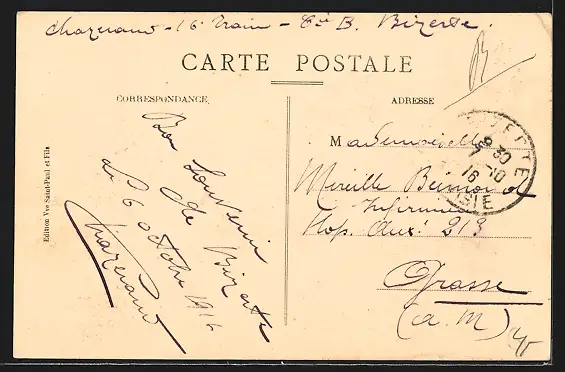 Chazeraud - 16e Train - Cie B. Bizerte.
CARTE POSTALE
CORRESPONDANCE
ADRESSE
Bon Souvenir
de Bizerte
le 6 octobre 1916
Chazeraud
Mademoiselle
Mireille
Infirmière
Hop. Aux. 213
Grasse
(A. M)
BIZERTE
30
16 - 10
16
SIE
Edition Vve Saint-Paul et Fils